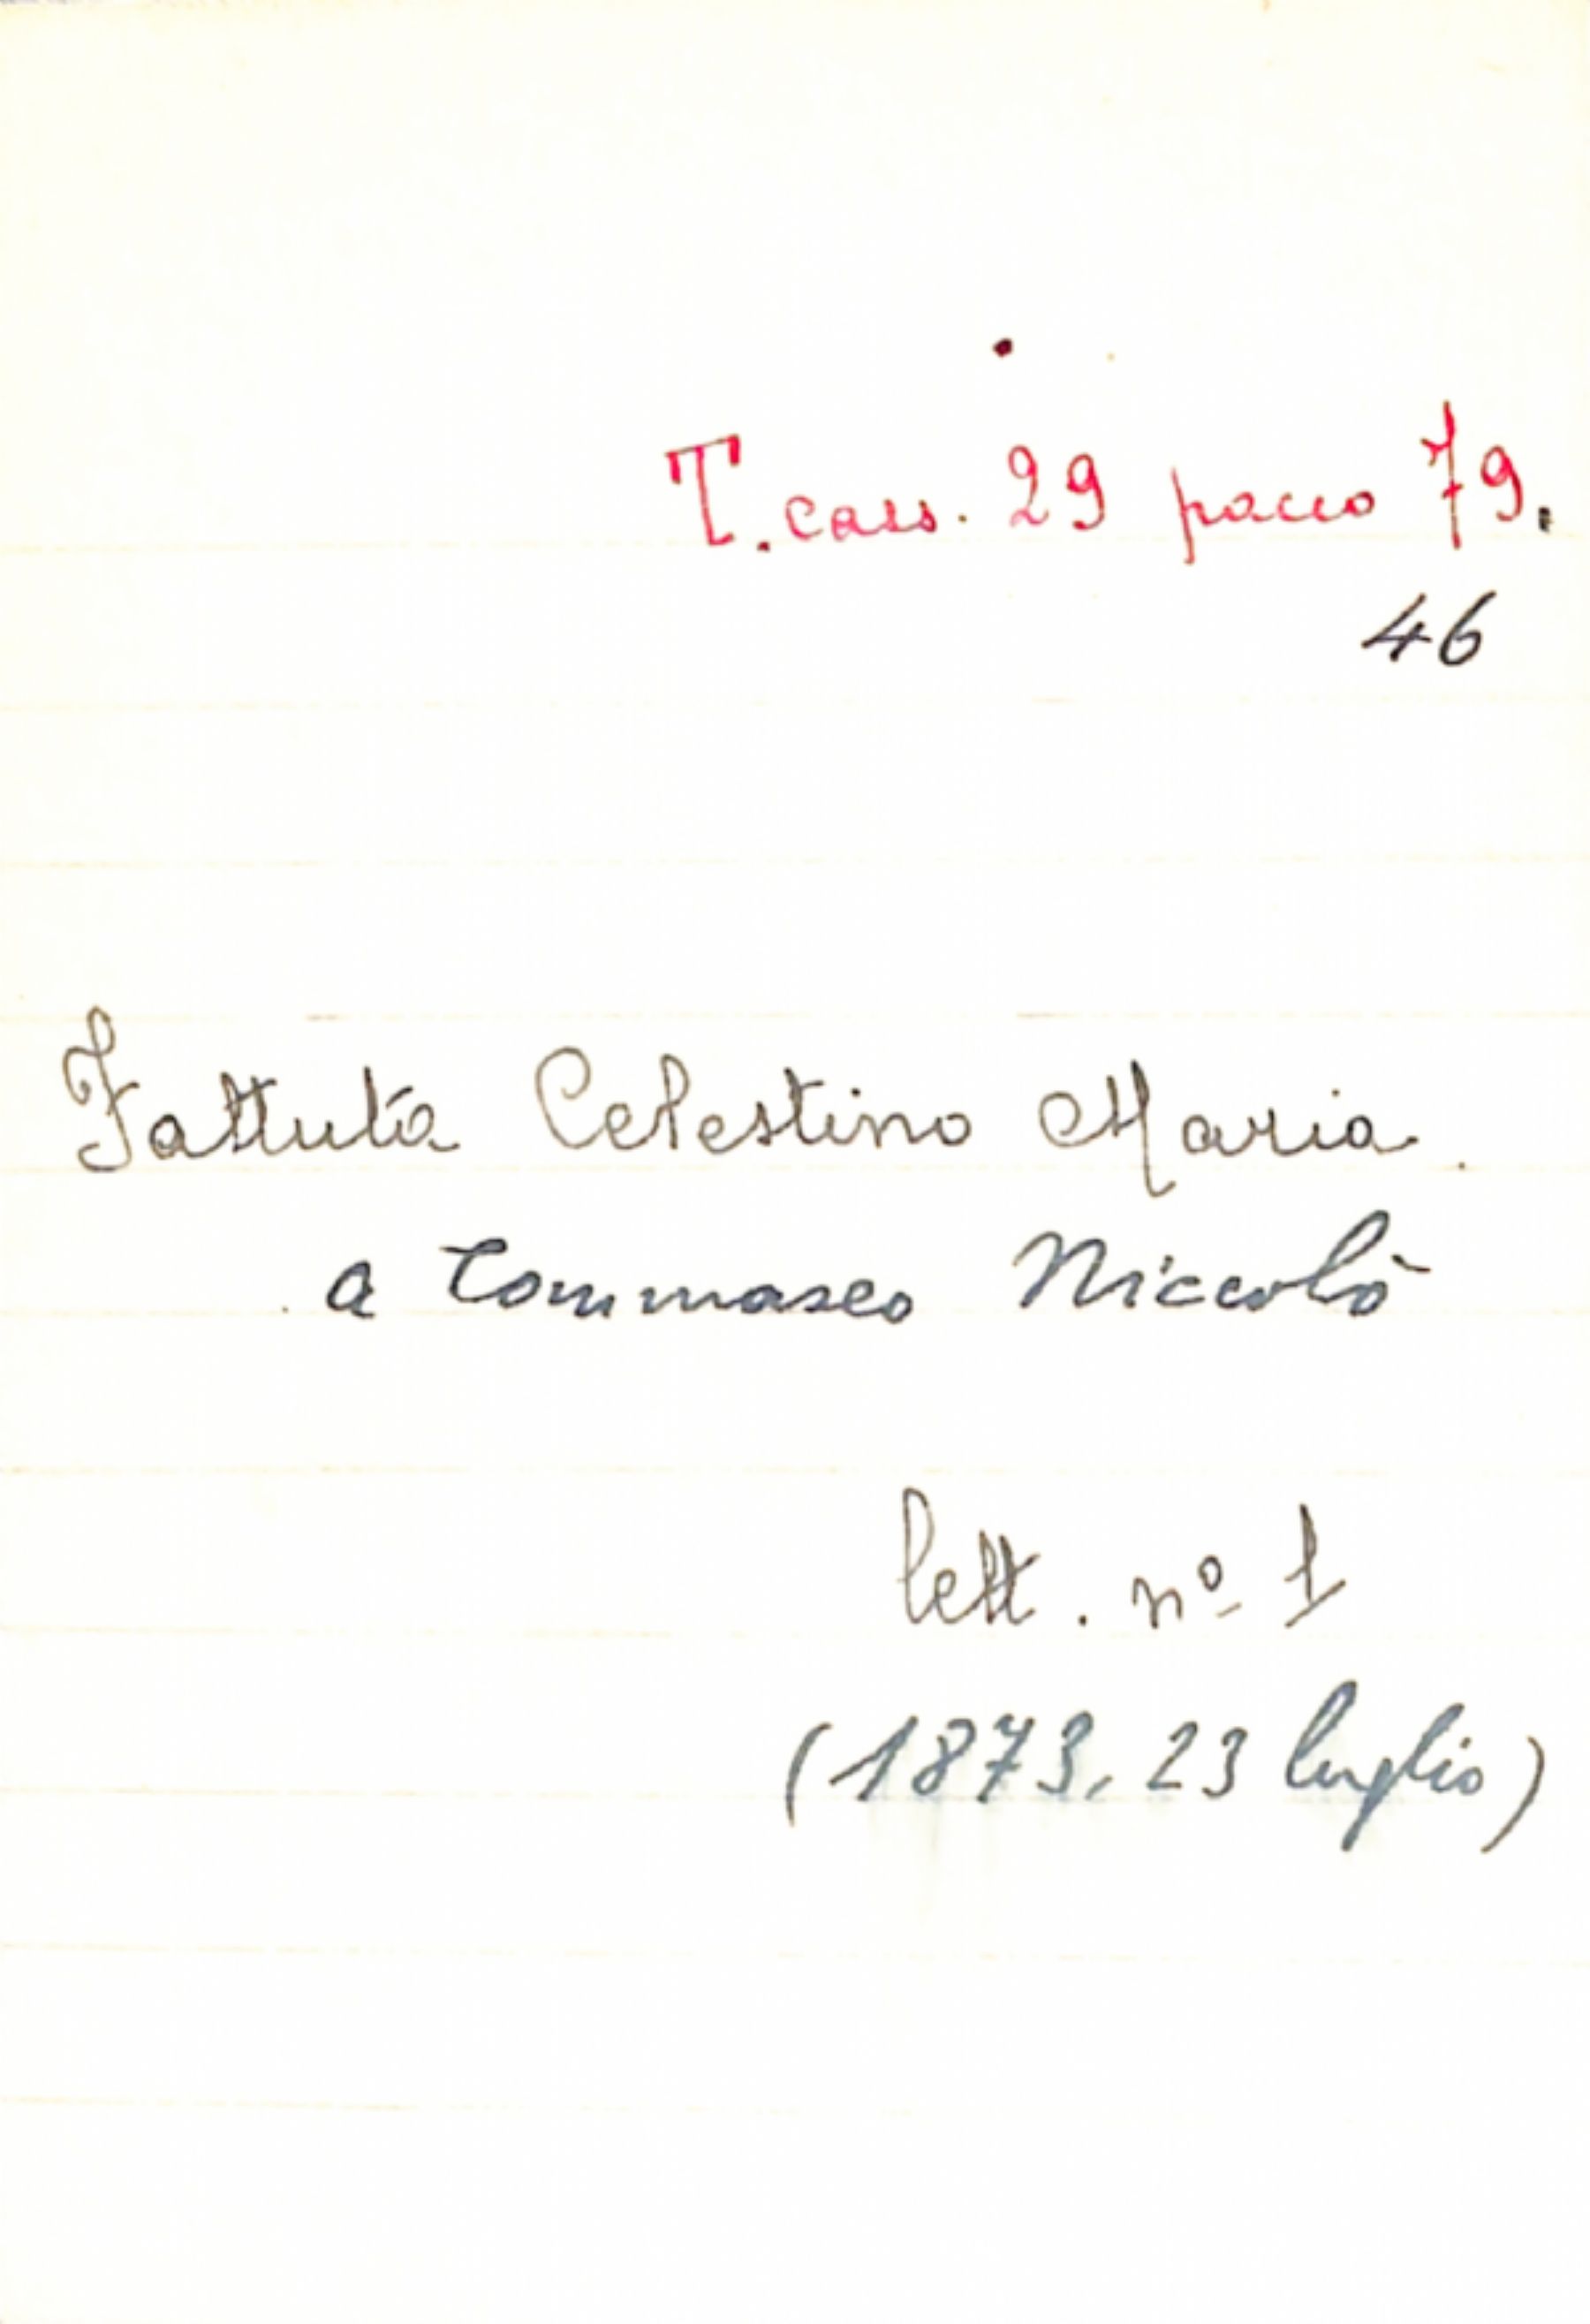 T. cass. 29 pacco 79.
46
Fattuta Celestino Maria.
a Tommaseo Niccolò
lett. nº 1
(1873, 23 luglio)